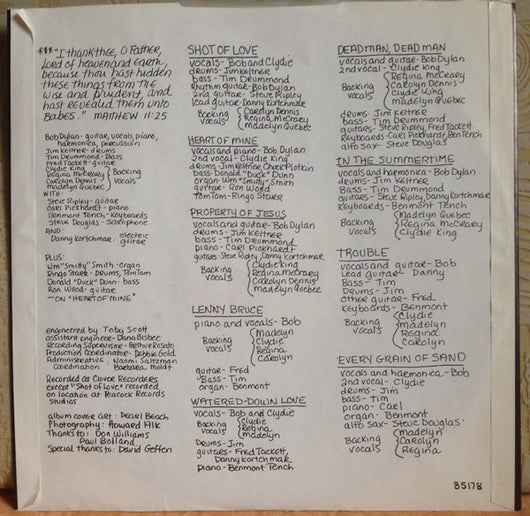 *** "I thank thee, O Father,
Lord of heaven and earth,
because thou hast hidden
these things from the
wise and prudent, and
hast revealed them unto
babes." MATTHEW 11:25
Bob Dylan - guitar, vocals, piano,
harmonica, percussion
Jim Keltner - drums
Tim Drummond - Bass
Fred Tackett - guitar
Clydie King
Regina McCreary
Carolyn Dennis
Madelyn Quebec
Backing
vocals
WITH:
Steve Ripley - guitar
Carl Pickhardt - piano
Benmont Tench - keyboards
Steve Douglas - saxophone
AND:
Danny Kortchmar electric
guitar
PLUS:
Wm "Smitty" Smith - organ
Ringo Starr - Drums, Tom Tom
Donald "Duck" Dunn - bass
Ron Wood - guitar
— ON "HEART OF MINE"
engineered by Toby Scott
assistant engineer - Dana Bisbee
Recording Supervisor - Arthur Rosato
Production Coordinator - Debbie Gold
Administrative : Naomi Saltzman
coordination Barbara Moldt
Recorded at Clover Recorders
except "Shot of Love" recorded
on location at Peacock Records
Studios
album cover art : Pearl Beach
Photography : Howard Alk
Thanks to : Don Williams
Paul Bolland
Special thanks to : David Geffen
SHOT OF LOVE
vocals - Bob and Clydie
drums - Jim Keltner
bass - Tim Drummond
Rhythm guitar - Bob Dylan
2nd guitar - Steve Ripley
lead guitar - Danny Kortchmar
Backing
vocals
Carolyn Dennis
Regina McCreary
Madelyn Quebec
HEART OF MINE
vocals and piano - Bob Dylan
2nd vocal - Clydie King
drums - Jim Keltner Chuck Plotkin
bass - Donald "Duck" Dunn
organ - Wm "Smitty" Smith
guitar - Ron Wood
Tom Tom - Ringo Starr
PROPERTY OF JESUS
vocals and guitar - Bob Dylan
drums - Jim Keltner
bass - Tim Drummond
piano - Carl Pickhardt
guitars - Steve Ripley, Danny Kortchmar
Backing
vocals
Clydie King
Regina McCreary
Carolyn Dennis
Madelyn Quebec
LENNY BRUCE
piano and vocals - Bob
Backing
vocals
Madelyn
Clydie
Regina
Carolyn
guitar - Fred
Bass - Tim
organ - Benmont
WATERED-DOWN LOVE
vocals - Bob and Clydie
Backing
vocals
Clydie
Regina
Madelyn
Drums - Jim
guitars - Fred Tackett,
Danny Kortchmar
piano - Benmont Tench
DEAD MAN, DEAD MAN
vocals and guitar - Bob Dylan
2nd vocal - Clydie King
Backing
vocals
Regina McCreary
Carolyn Dennis
Clydie King
Madelyn Quebec
drums - Jim Keltner
bass - Tim Drummond
guitars - Steve Ripley, Fred Tackett
Keyboards - Carl Pickhardt, Ben Tench
alto sax - Steve Douglas
IN THE SUMMERTIME
vocals and harmonica - Bob Dylan
drums - Jim Keltner
Bass - Tim Drummond
guitars - Steve Ripley Danny Kortchmar
Keyboards - Benmont Tench
Backing
vocals
Madelyn Quebec
Regina McCreary
Clydie King
TROUBLE
vocals and guitar - Bob
Lead guitar - Danny
Bass - Tim
Drums - Jim
other guitar - Fred
Keyboards - Benmont
Backing
vocals
Clydie
Madelyn
Regina
Carolyn
EVERY GRAIN OF SAND
vocals and harmonica - Bob
2nd vocal - Clydie
drums - Jim
bass - Tim
piano - Carl
organ - Benmont
alto sax - Steve Douglas
Backing
vocals
Madelyn
Carolyn
Regina
85178